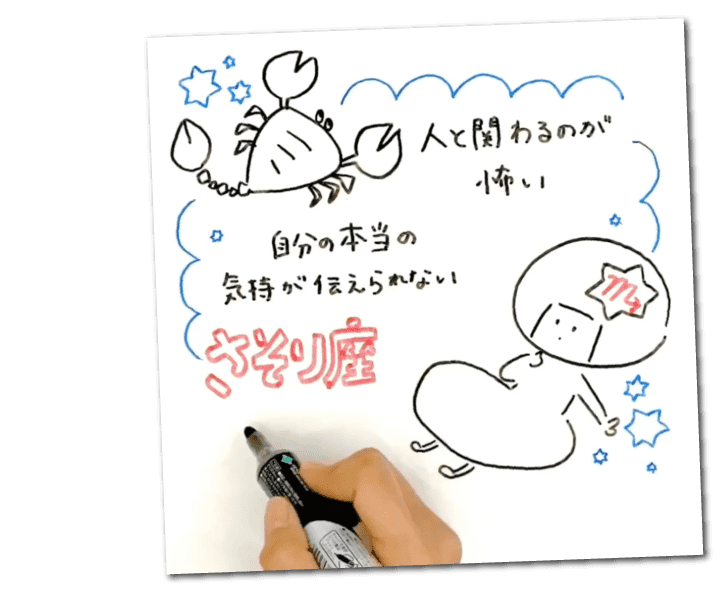 人と関わるのが
怖い
自分の本当の
気持が伝えられない
さそり座
♏